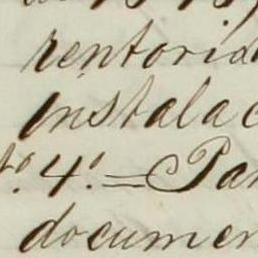 rentorid
instalac
to. 4.º = Par
documen